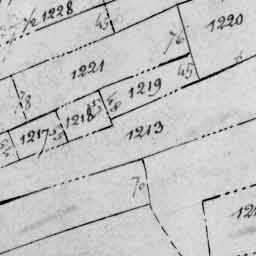 1228
45
1220
76
1221
45
78
1219
1218
1217
1213
70